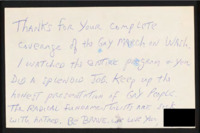 THANKS for YOUR COMPLETE
COVERAGE of the GAY MARCH ON WASH.
I WATCHED the ENTIRE PROGRAM & YOU
DID A SPLENDID JOB. KEEP UP the
HONEST PRESENTATION of GAY PEOPLE
THE RADICAL FUNDAMENTALISTS ARE SICK
WITH HATRED. BE BRAVE. WE